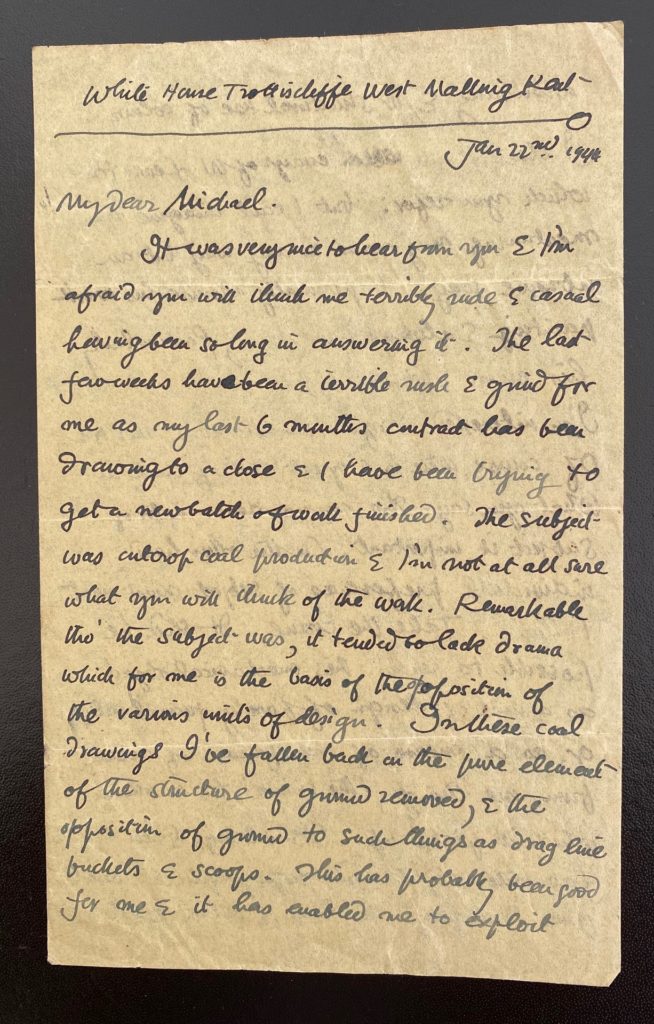 White House Trottiscliffe West Malling Kent
Jan 22nd. 1944
My dear Michael.
It was very nice to hear from you & I'm
afraid you will think me terribly rude & casual
having been so long in answering it. The last
few weeks have been a terrible rush & grind for
me as my last 6 months contract has been
drawing to a close & I have been trying to
get a new batch of work finished. The subject
was outcrop coal production & I'm not at all sure
what you will think of the work. Remarkable
tho' the subject was, it tended to lack drama
which for me is the basis of the opposition of
the various units of design. In these coal
drawings I've fallen back on the pure element
of the structure of ground removed, & the
opposition of ground to such things as drag line
buckets & scoops. This has probably been good
for me & it has enabled me to exploit